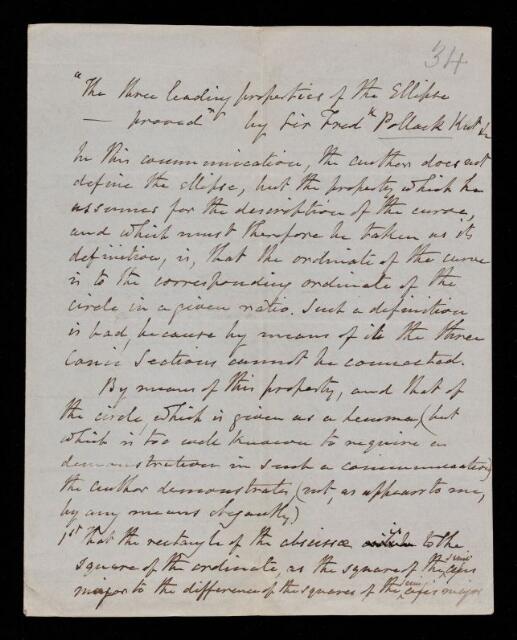 34
"The three leading properties of the Ellipse
— proved" by Sir Fred.k Pollock Knt &c
In this communication, the author does not
define the ellipse, but the property which he
assumes for the description of the curve,
and which must therefore be taken as its
definition, is, that the ordinate of the curve
is to the corresponding ordinate of the
circle in a given ratio. Such a definition
is bad, because by means of it the three
Conic Sections cannot be connected.
By means of this property, and that of
the circle, which is given as a lemma, (but
which is too well known to require a
demonstration in such a communication)
the author demonstrates (not, as appears to me,
by any means elegantly)
1st That the rectangle of the abscissæ is to the
square of the ordinate, as the square of the semi axis
major to the difference of the squares of the semi axis major